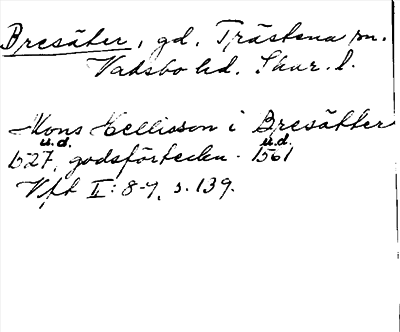 Bresäter, gd, Trästena sn.
Vadsbo hd. Skar. l.
Mons Hellisson i Bresätter
u.d. u.d.
1527, godsförteckn. 1561
Vft II: 8-9, s. 139.